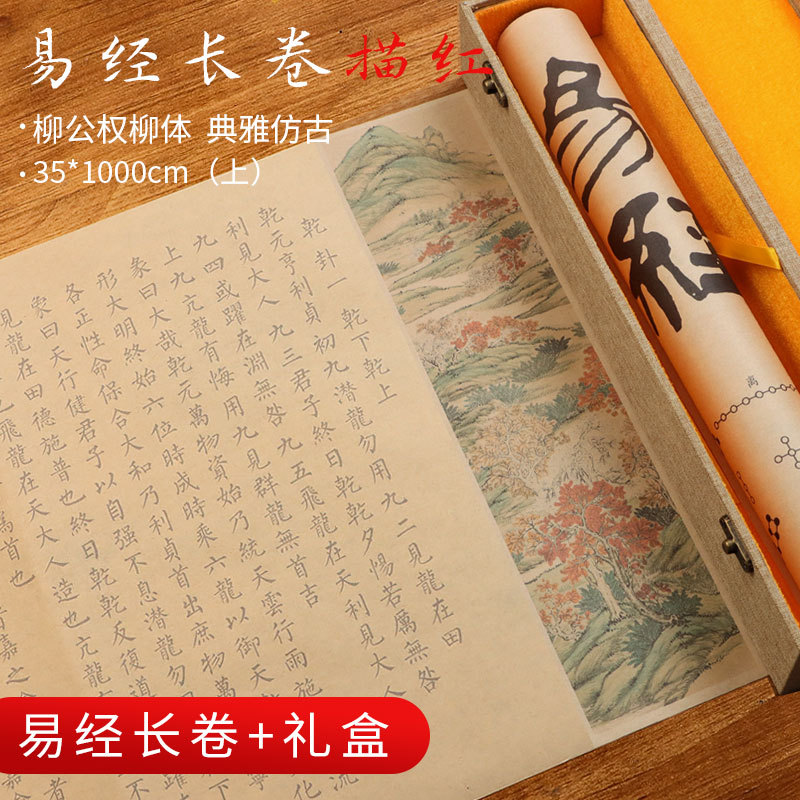 易经长卷描红
·柳公权柳体 典雅仿古
·35*1000cm（上）
易經
离
乾卦一 乾下乾上
乾元亨利貞初九潛龍勿用九二見龍在田
利見大人九三君子終日乾乾夕惕若厲無咎
九四或躍在淵無咎九五飛龍在天利見大人
上九亢龍有悔用九見群龍無首吉
彖曰大哉乾元萬物資始乃統天雲行雨施
形大明終始六位時成時乘六龍以御天
各正性命保合大和乃利貞首出庶物萬
象曰天行健君子以自强不息潛龍勿
見龍在田德施普也終日乾乾反復道
飛龍在天大人造也亢龍
首也
嘉之
易经长卷+礼盒